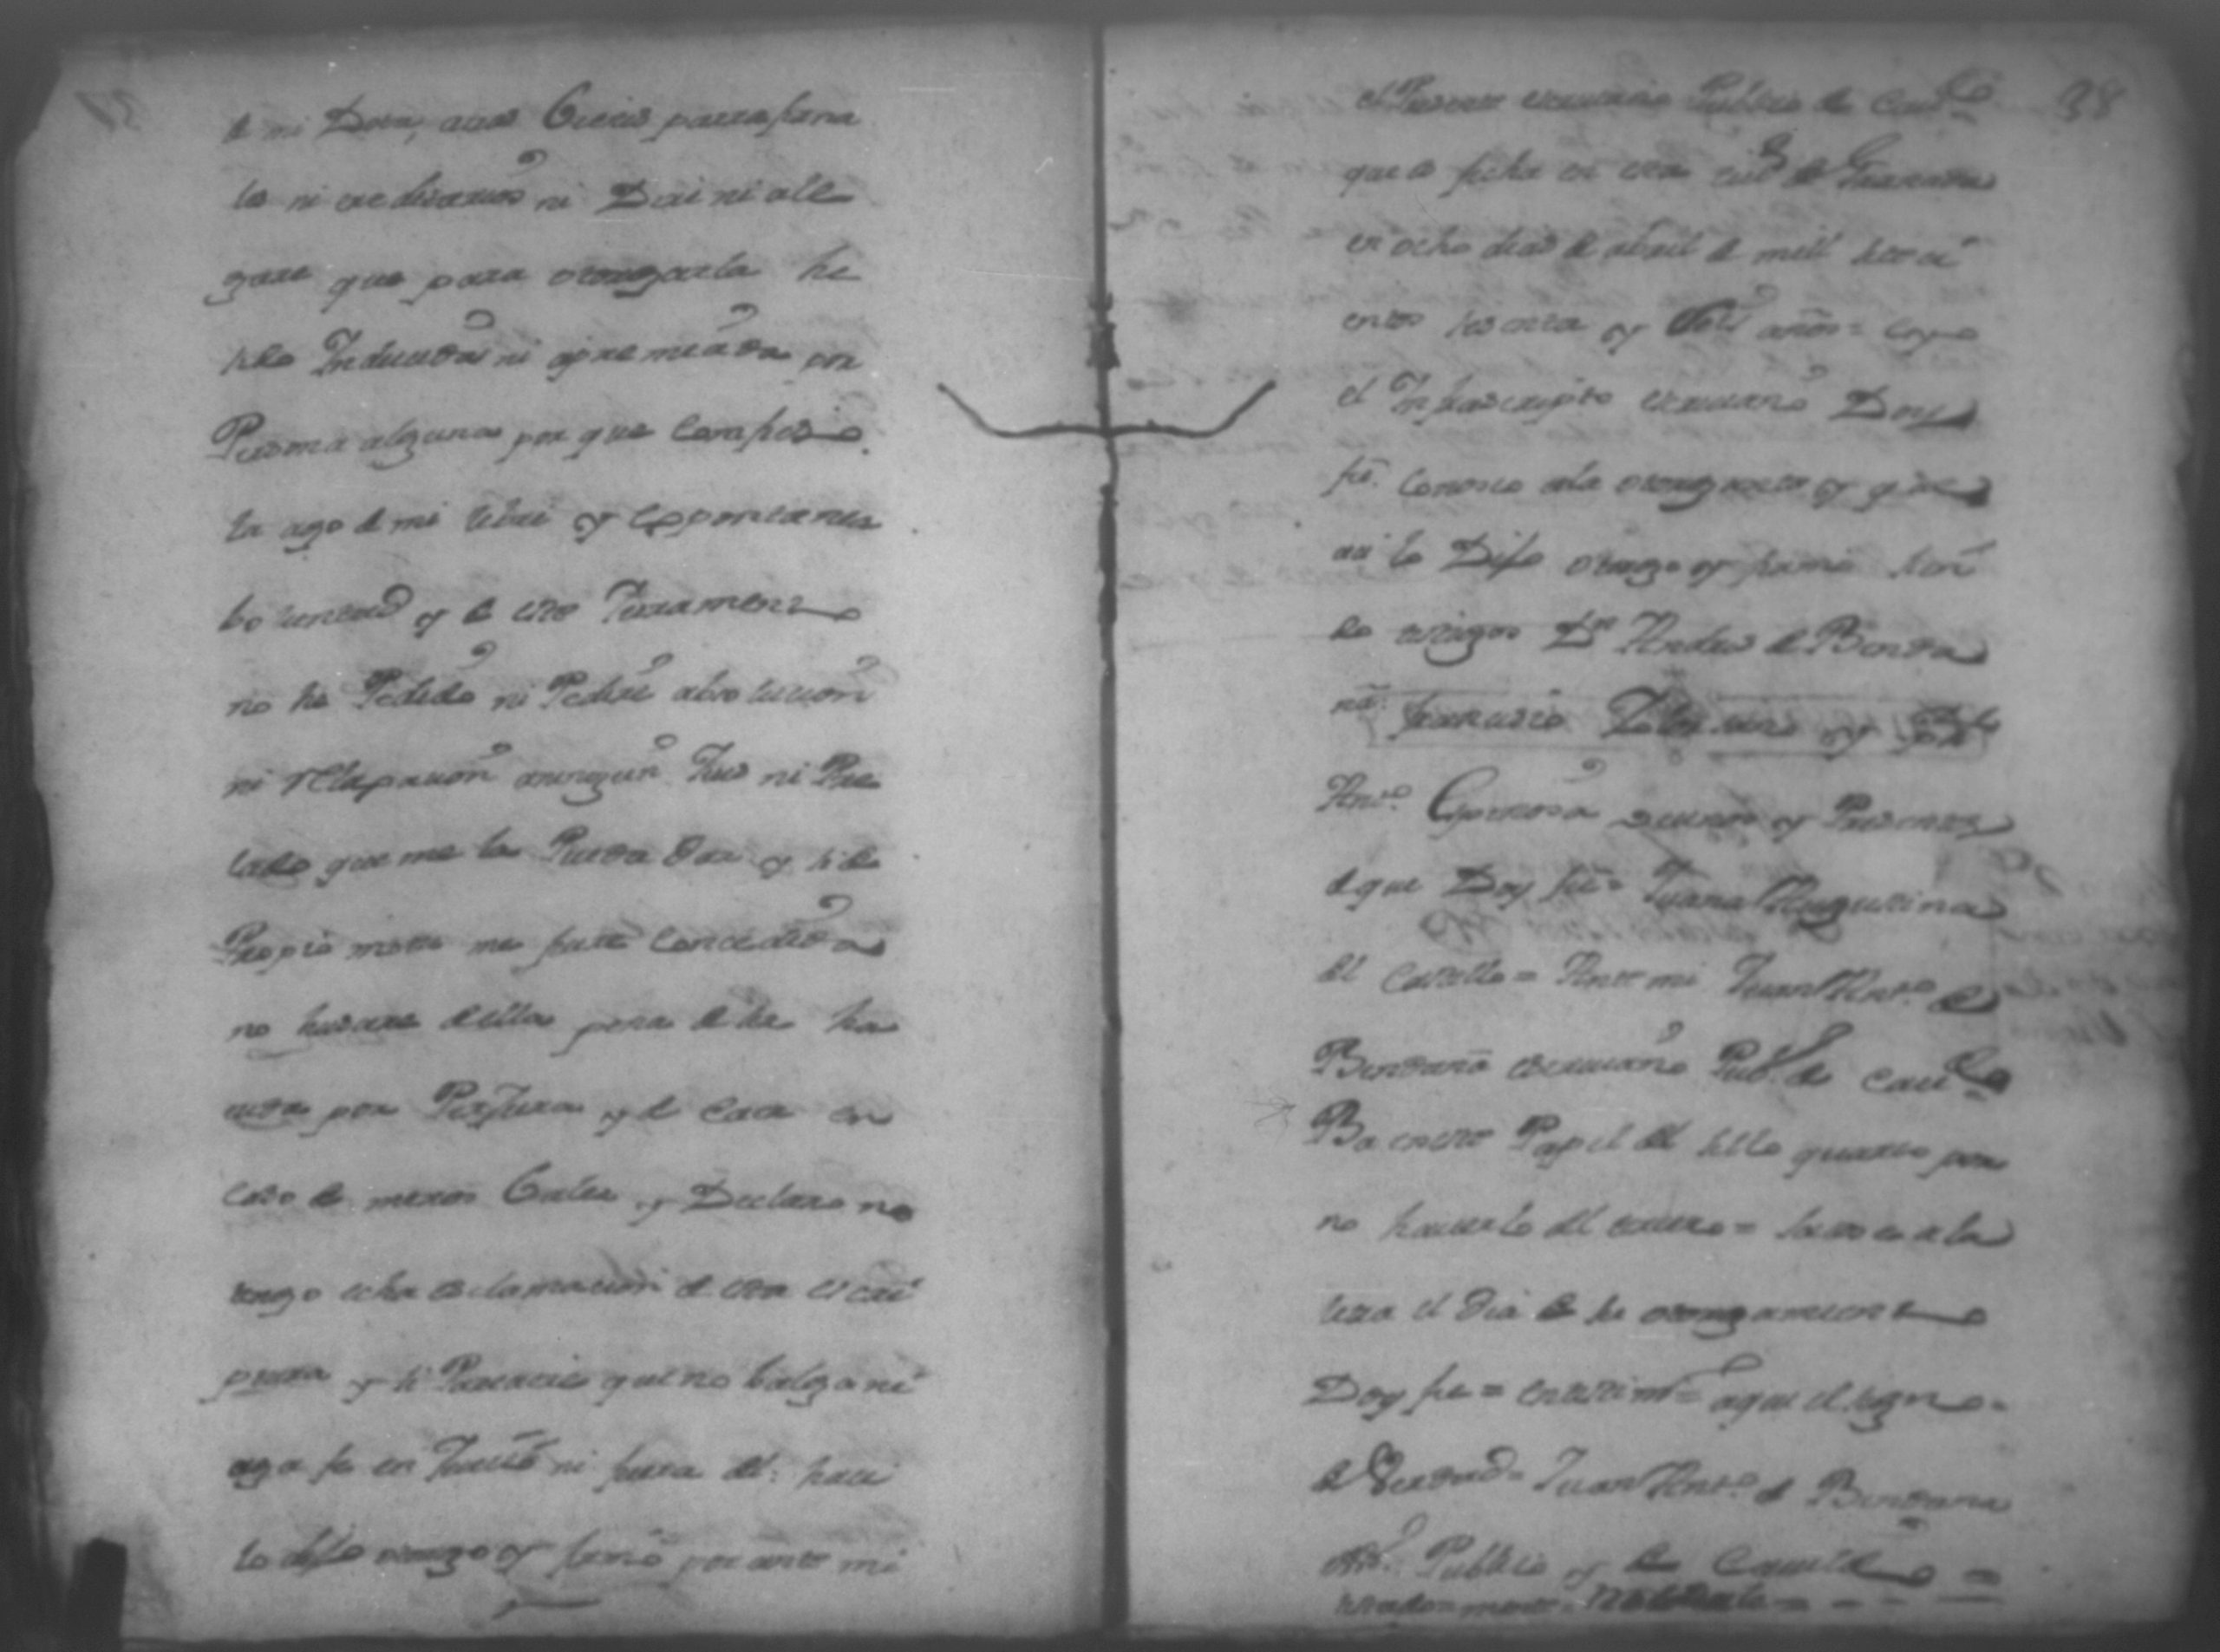 de mi Dote, arras Bienes parrafrena
les ni ereditarios ni Dire ni alle
gare que para otorgarla he
sido Inducida ni apremiada por
Persona alguna por que Confieso
la ago de mi libre y espontanea
boluntad y de este Juramento
no he Pedido ni Pedire absolucion
ni relapsacion aningun Jues ni Pre
lado que me la Pueda dar y si de
Propio motu me fuere Concedida
no husare della pena de ser ha
uida por Perjura y de caer en
caso de menos Baler y Declaro no
tengo echa esclamacion de esta escri
ptura y si Pareciere que no balga ni
aga fe en Juicio ni fuera del: haci
lo dijo otorgo y firmo por ante mi
38
el Presente escriuano Publico de Cauildo
que es fecha en esta ciud de Granada
en ocho dias de abril de mill seteci
entos sesenta y años = E yo
el Infrascripto escriuano Doy
fe conosco ala otorgante y que
asi lo Dijo otorgo y firmo sien
do testigos Dn Andres de Benda
ña francisco y
Anto Espinosa vecinos y Presentes
de que Doy fe = Juana Augustina
del Castillo = Ante mi Juan Anto de
Bendaña escriuano Pubco de Cauildo
Ba en este Papel del sello quarto por
no hauerlo del tercero = Sacose a la
letra el dia de su otorgamiento
Doy fe = en testimo = aqui el signo =
de Verdad = Juan Anto de Bendaña
Publico y de Cauildo =